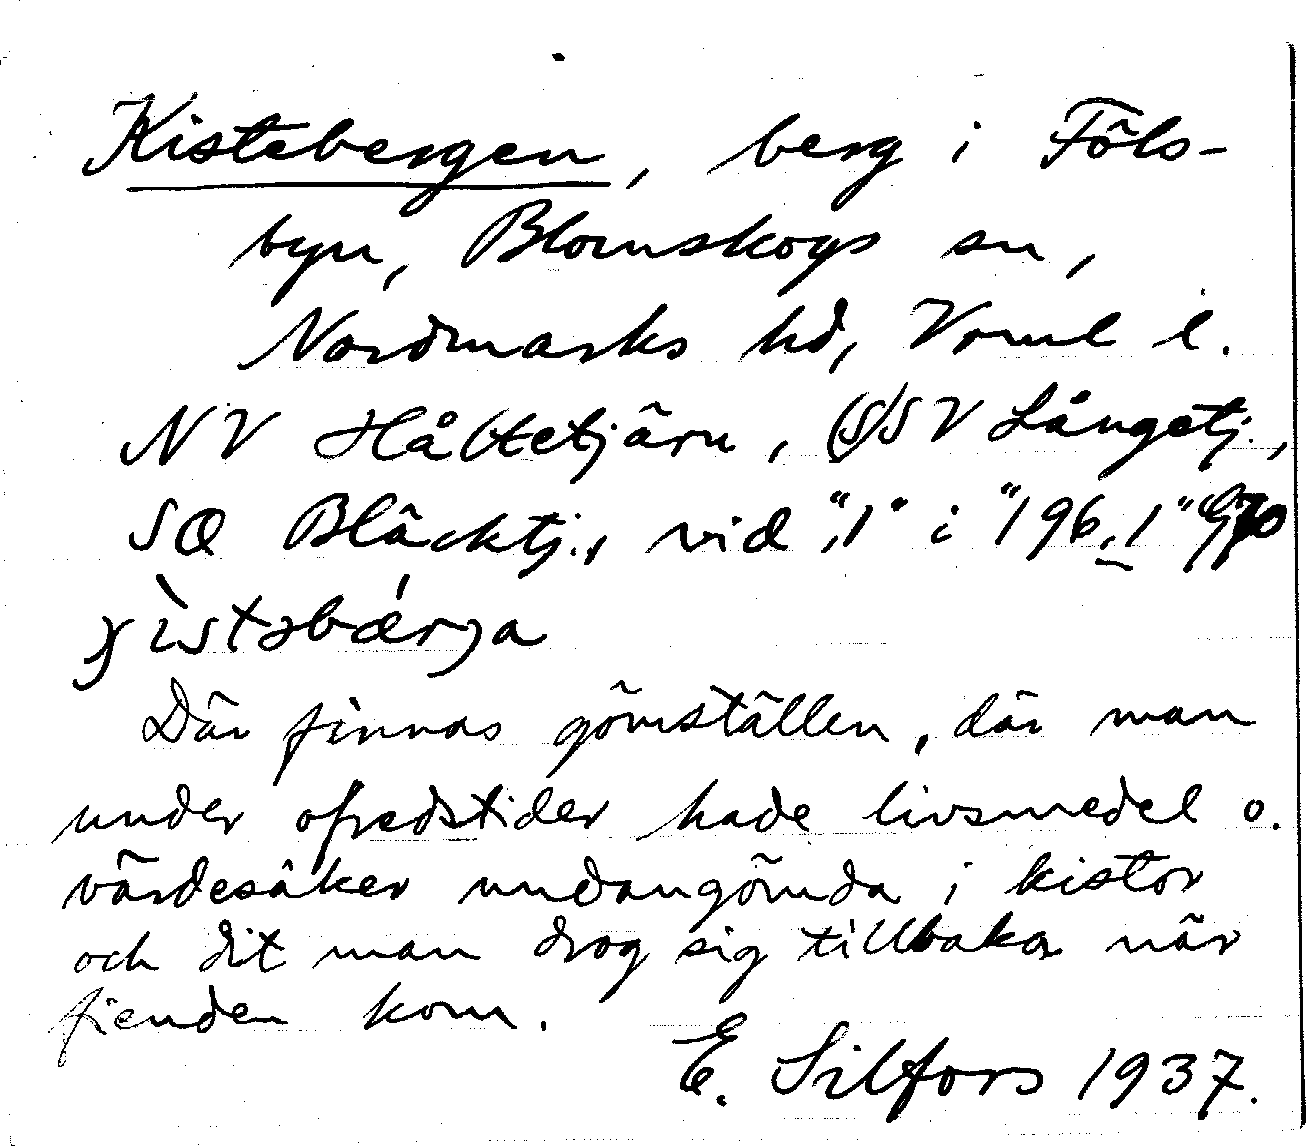 Kistebergen, berg i Föls-
byn, Blomskogs sn,
Nordmarks hd, Vrml l.
NV Håltetjärn, (S)SV Långetj.,
SO Bläcktj., vid "1" i "196,1"
Där finnas gömställen, där man
under ofredstider hade livsmedel o.
värdesaker undangömda i kistor
och dit man drog sig tillbaka när
fienden kom.
E. Silfors 1937.